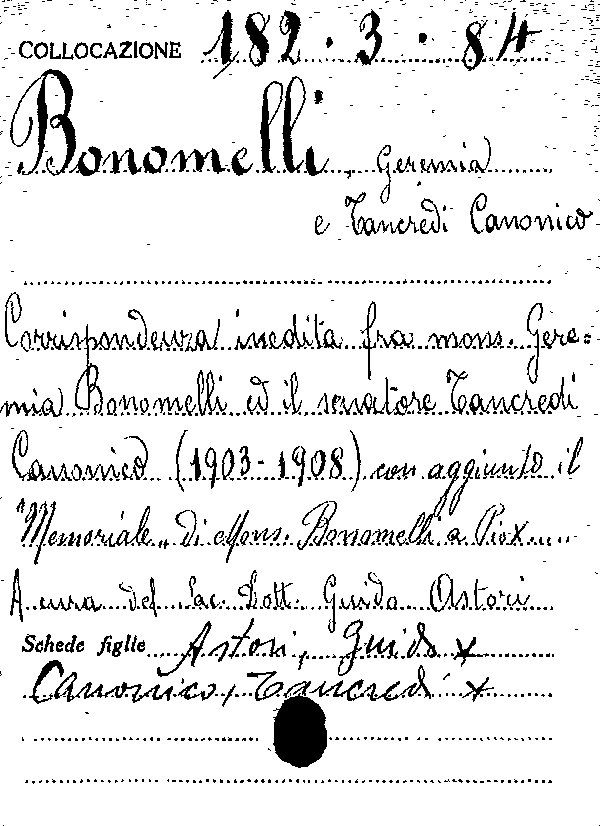 COLLOCAZIONE 182.3.84
Bonomelli, Geremia
e Tancredi Canonico
Corrispondenza inedita fra mons. Gere=
mia Bonomelli ed il senatore Tancredi
Canonico (1903-1908) con aggiunto il
"Memoriale„ di Mons. Bonomelli a Pio X......
A cura del Sac. Dott. Guido Astori
Schede figlie Astori, Guido x
Canonico, Tancredi x